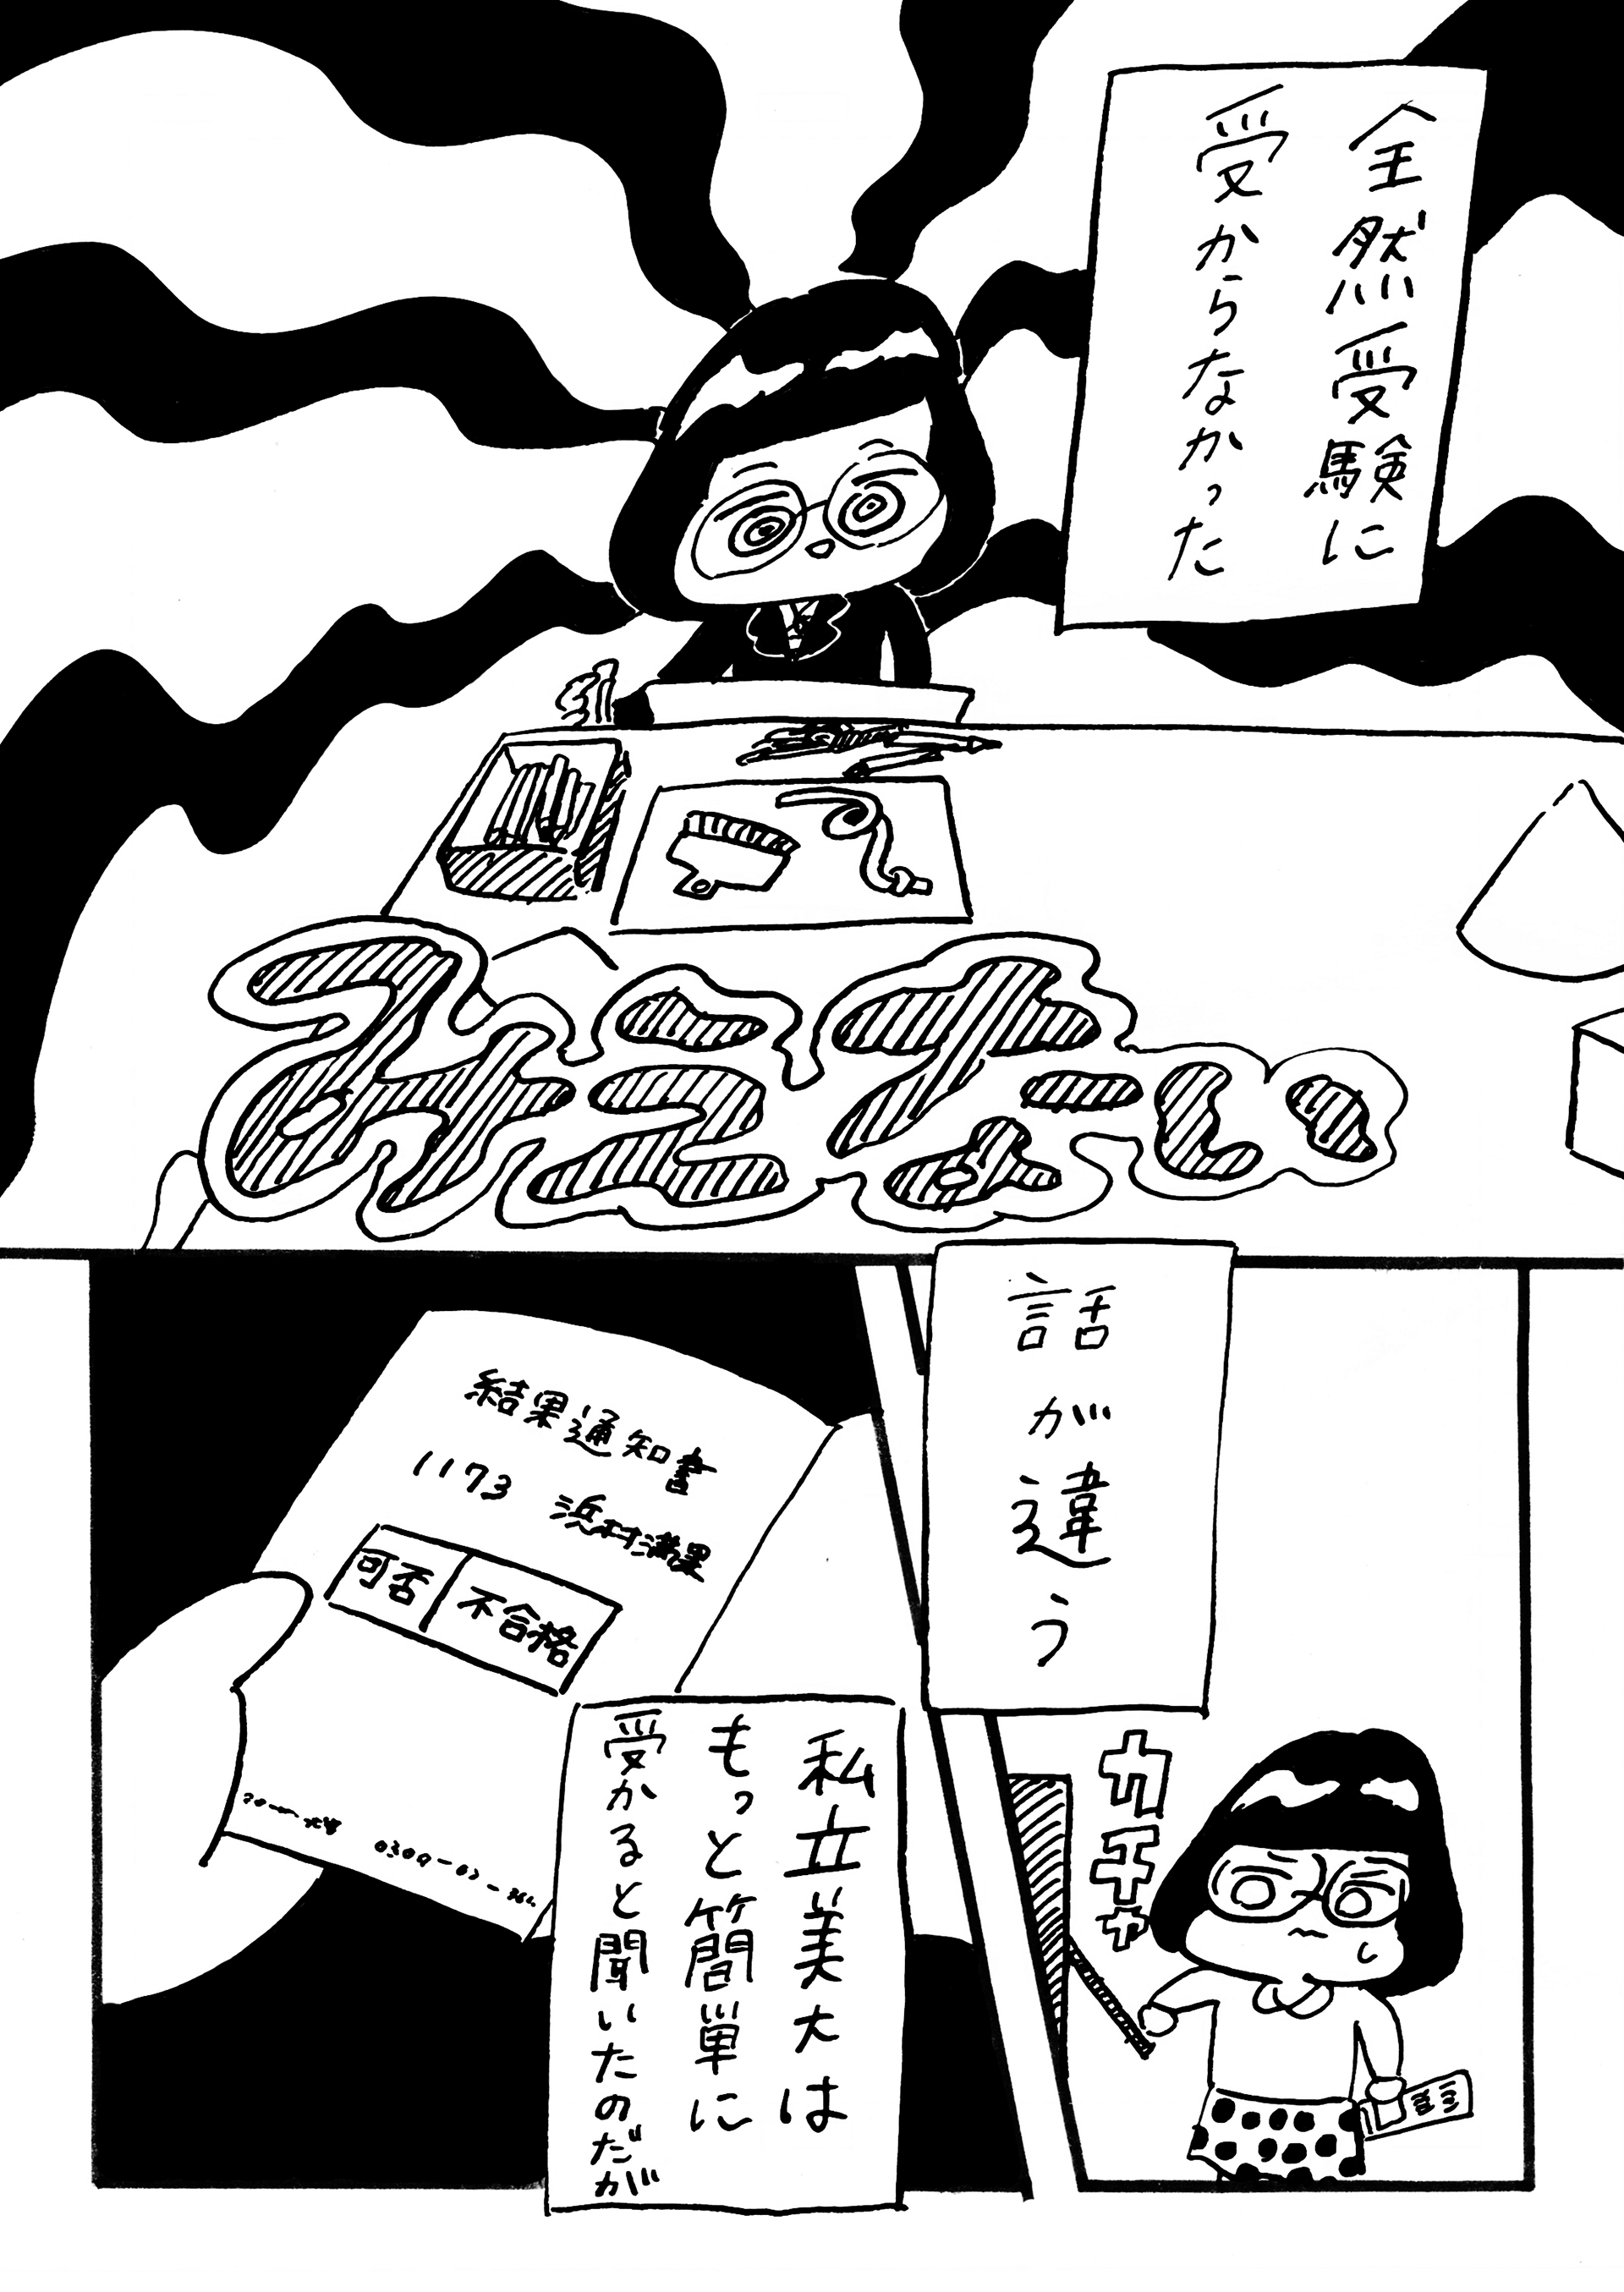 全然受験に
受からなかった
みえない
話が違う
カチャ
結果通知書
1173 浜村満果
可否 不合格
私立美大は
もっと簡単に
受かると聞いたのだが